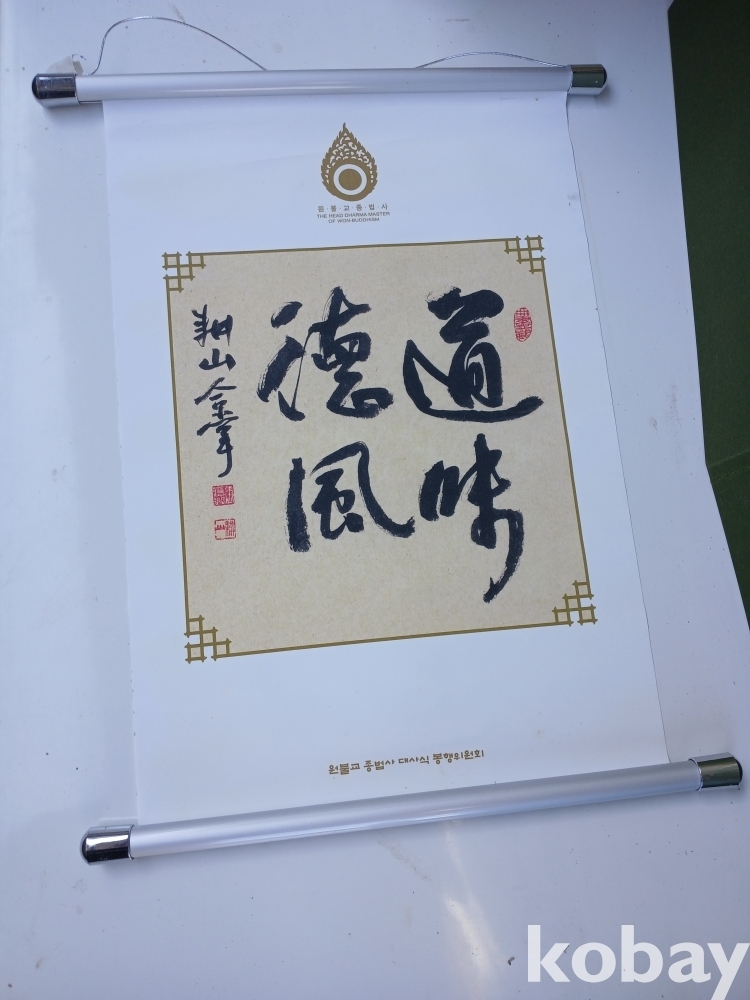 원·불·교·종·법·사
THE HEAD DHARMA MASTER
OF WON-BUDDHISM
道味
德風
耕山合掌
원불교 종법사 대사식 봉행위원회
kobay